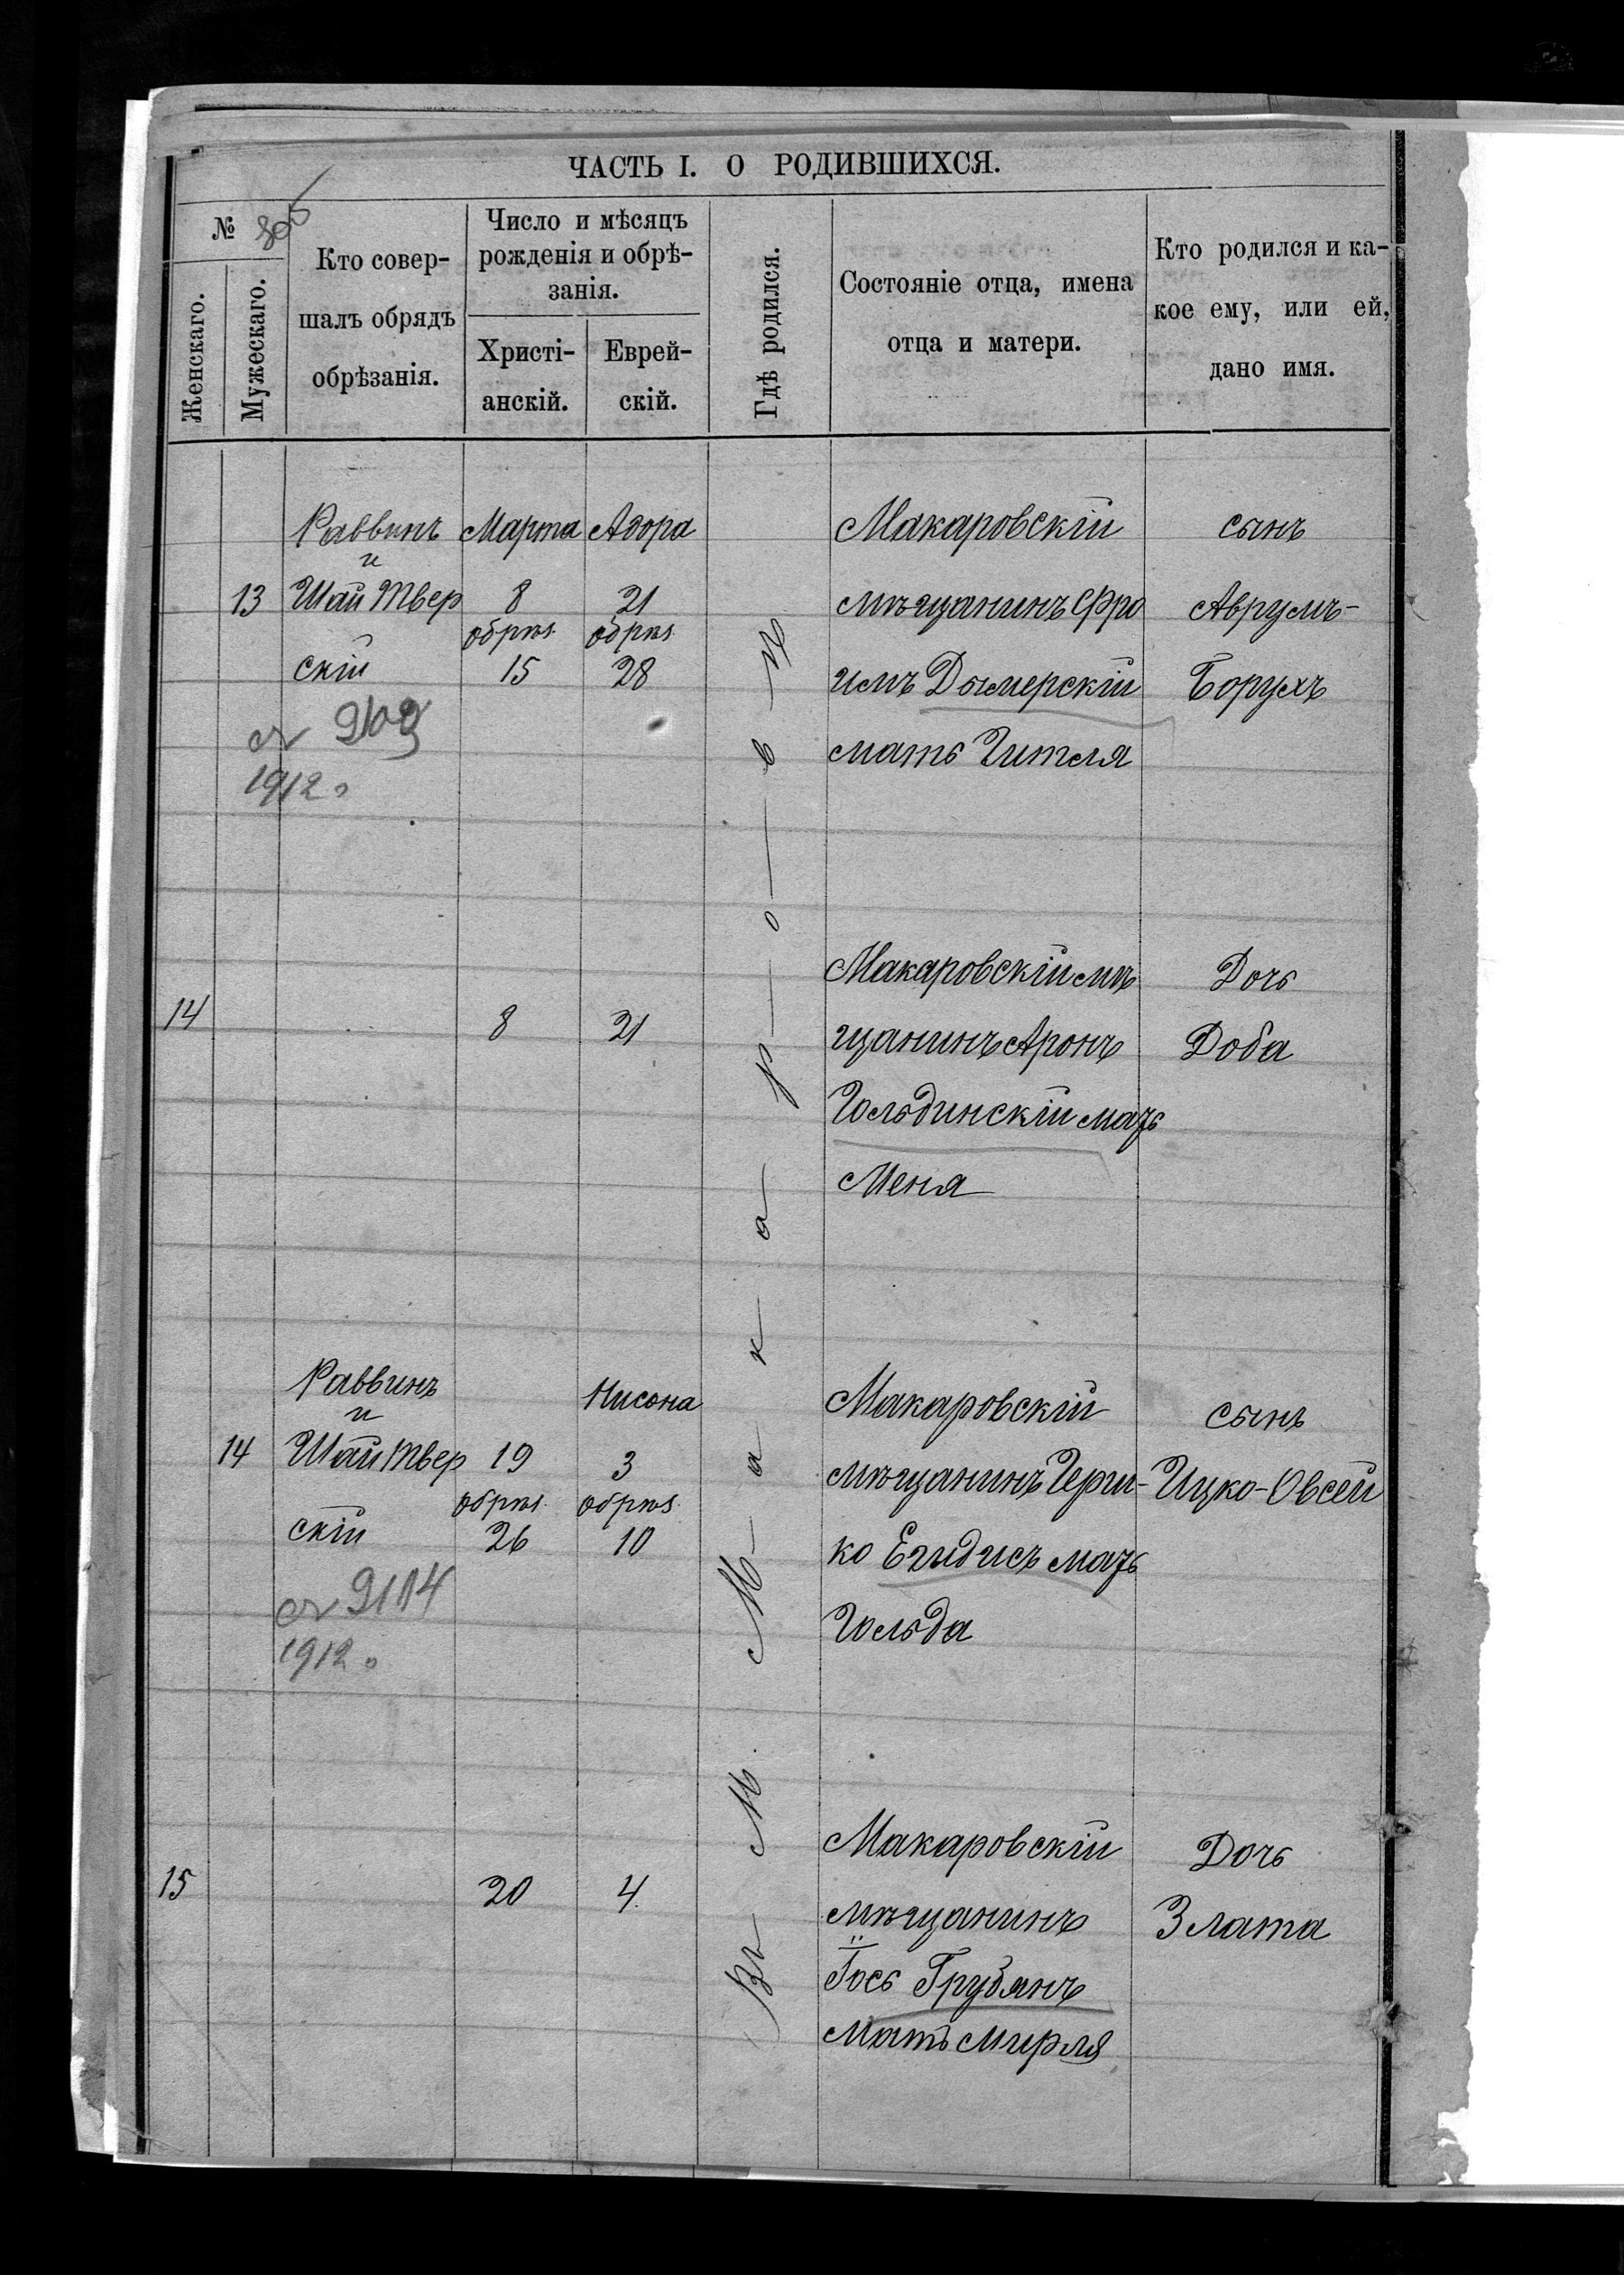 ЧАСТЬ I. О РОДИВШИХСЯ.
№
Женскаго.
Мужескаго.
Кто совер-
шалъ обрядъ
обрѣзанія.
Число и мѣсяцъ
рожденія и обрѣ-
занія.
Христі-
анскій.
Еврей-
скій.
Гдѣ родился.
Состояніе отца, имена
отца и матери.
Кто родился и ка-
кое ему, или ей,
дано имя.
Въ М. Макаровѣ
13
Раввинъ
и
Шай Твер
скій
Марта
8
обрѣз.
15
Адора
21
обрѣз.
28
Макаровскій
мѣщанинъ Фро
имъ Дымерскій
мать Гитля
сынъ
Аврумъ-
Борухъ
1912
14
8
21
Макаровскій мѣ
щанинъ Аронъ
Гольдинскій мать
Меня
Дочь
Доба
14
Раввинъ
и
Шай Твер
скій
19
обрѣз.
26
Нисона
3
обрѣз.
10
Макаровскій
мѣщанинъ Герш-
ко Егыдисъ мать
Гольда
сынъ
Ицко-Овсей
9104
1912
15
20
4.
Макаровскій
мѣщанинъ
Іось Грубянъ
мать Мирля
Дочь
Злата